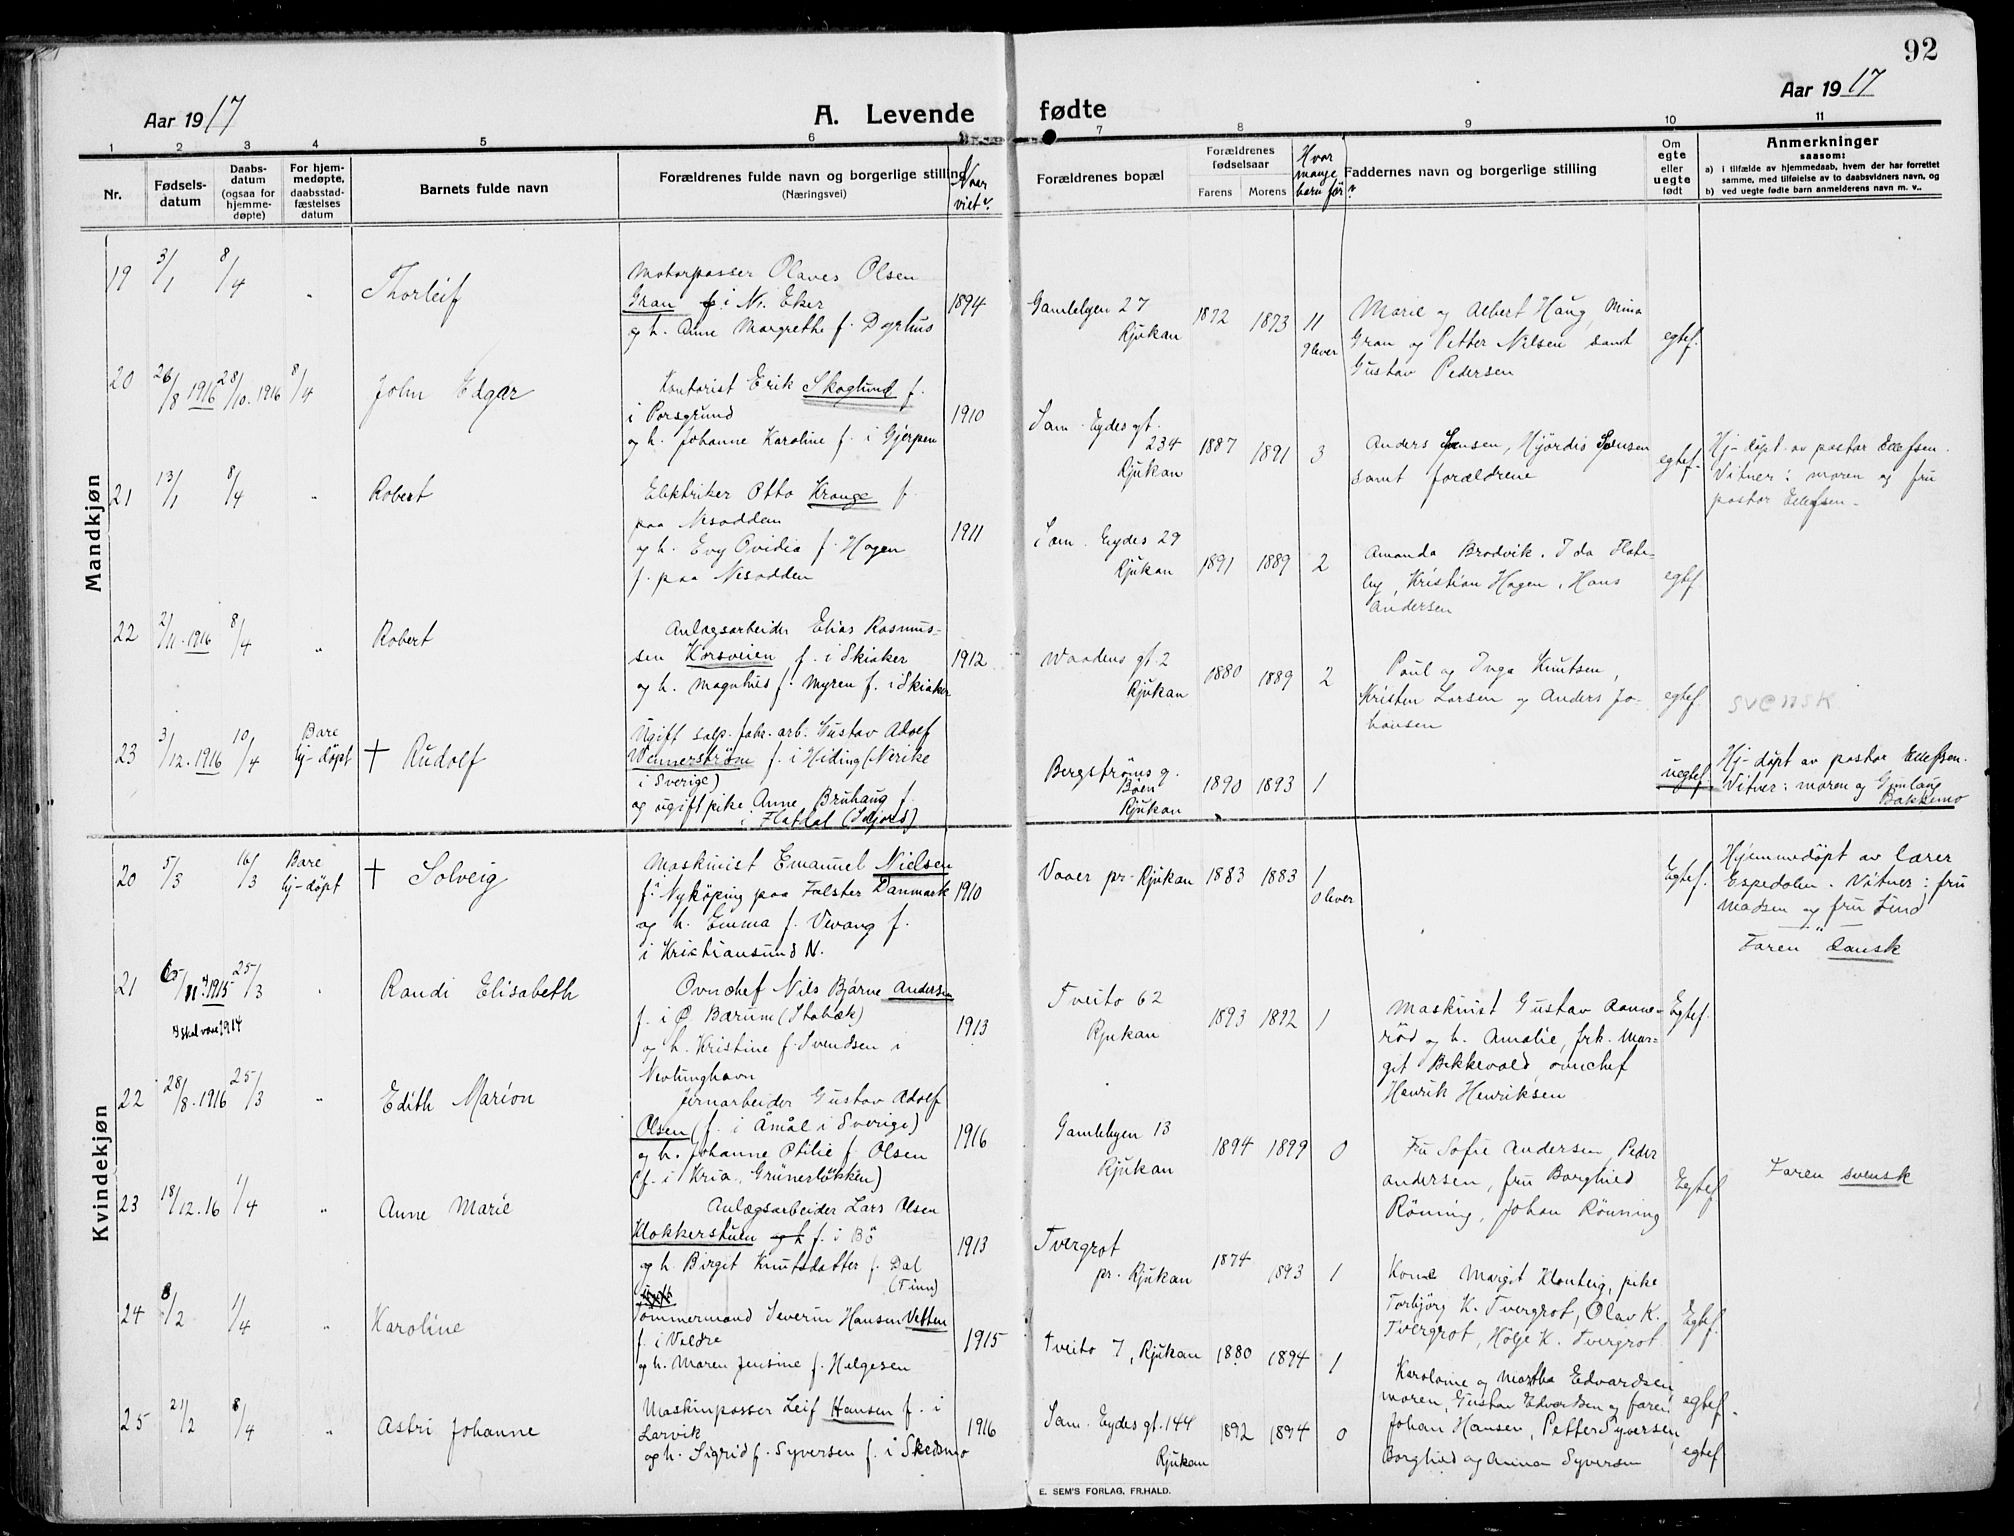 92
Aar 1917
A. Levende fødte
Aar 1917
1 2 3 4 5 6 7 8 9 10 11
Nr.
Fødsels-
datum
Daabs-
datum
(ogsaa for
hjemme-
døpte)
For hjem-
medøpte,
daabsstad-
fæstelses
datum
Barnets fulde navn
Forældrenes fulde navn og borgerlige stilling
(Næringsvei)
Naar
viet?
Forældrenes bopæl
Forældrenes
fødselsaar
Farens Morens
Hvor
mange
barn før?
Faddernes navn og borgerlige stilling
Om
egte
eller
uegte
født
Anmerkninger
saasom:
a) i tilfælde av hjemmedaab, hvem der har forrettet
samme, med tilføielse av to daabsvidners navn, og
b) ved uegte fødte barn anmelderens navn m. v..
Mandkjøn
19 3/1 8/4 " Thorleif
Motorpasser Olaves Olsen
Gran f. i N. Eker
og h. Anne Margrethe f. Dyrhus
1894
Gamlebyen 27
Rjukan
1872 1873 11
9 lever
Marie og Albert Haug, Mina
Gran og Petter Nilsen samt
Gustav Pedersen
egtef.
20 26/8 1916 28/10. 1916 8/4 John Edgar
Kontorist Erik Skoglund f.
i Porsgrund
og h. Johanne Karoline f. i Gjerpen
1910
Sam. Eydes gt.
234
Rjukan
1887 1891 3
Anders Jensen, Hjördis Jensen
samt forældrene
egtef.
Hj-döpt av pastor Ellefsen.
Vitner: moren og fru
pastor Ellefsen.
21 13/1 8/4 " Robert
Elektriker Otto Krange f.
paa Nesodden
og h. Evy Ovidia f. Hagen
f. paa Nesodden
1911
Sam. Eydes 29
Rjukan
1891 1889 2
Amanda Brodvik. Ida Flate-
by, Kristian Hagen, Hans
Andersen
egtef.
22 2/11. 1916 8/4 " Robert
Anlægsarbeider Elias Rasmus-
sen Korsveien f. i Skiaker
og h. Magnhus f. Myren f. i Skiaker
1912
Waadens gt. 2
Rjukan
1880 1889 2
Paul og Inga Knutsen,
Kristen Larsen og Anders Jo-
hansen
egtef.
SVENSK
23 3/12. 1916 10/4 Bare
hj-döpt † Rudolf
Ugift salp. fabr. arb. Gustav Adolf
Wennerström f. i Hiding (Nerike
i Sverige)
og ugift pike Anne Bruhaug f.
i Flatdal (Seljord)
Bergströms g.
Böen
Rjukan
1890 1893 1
uegtef.
Hj-döpt av pastor Ellefsen.
Vitner: moren og Gunlaug
Bakkemo
Kvindekjøn
20 5/3 16/3 Bare
hj-döpt † Solveig
Maskinist Emanuel Nielsen
f. Nyköping paa Falster Danmark
og h. Emma f. Vevang f.
i Kristiansund N.
1910
Vaaer pr. Rjukan 1883 1883 1
0 lever
Egtef.
Hjemmedöpt av lærer
Espedalen. Vitner: fru
Madsen og fru Lind
Faren dansk
21 25/3 " Randi Elisabeth
skal være 1914
Ovnchef Nils Bjarne Andersen
f. i Ø Bærum (Stabæk)
og h. Kristine f. Svendsen i
Nevlunghavn
1913
Tveito 62
Rjukan
1893 1892 1
Maskinist Gustav Aanne-
röd og h. Amalie, frk. Mar-
git Bekkevold, ovnchef
Henrik Henriksen
Egtef.
22 28/8. 1916 25/3 " Edith Marion
Jernarbeider Gustav Adolf
Olsen (f. i Åmål i Sverige)
og h. Johanne Otilie f. Olsen
(f. i Kria, Grünerslökken)
1916
Gamlebyen 13
Rjukan
1894 1899 0
Fru Sofie Andersen, Peder
Andersen, fru Borghild
Röning, Johan Rönning
Egtef.
Faren svensk
23 18/12. 16 1/4 " Anne Marie
Anlægsarbeider Lars Olsen
Klokkerstuen og h f. i Bö
og h. Birgit Knutsdatter f. Dal
(Tinn)
1913
Tvergrot
pr. Rjukan
1874 1893 1
Kone Margit Klonteig, pike
Torbjörg K. Tvergrot, Olav K.
Tvergrot, Hölje K. Tvergrot
Egtef.
24 8/2 1/4 " Karoline
Tömmermand Severin Hansen Vetten
f. i Valdre
og h. Maren Jensine f. Helgesen
1915
Tveito 7, Rjukan 1880 1894 1
Karoline og Martha Edvardsen,
moren, Gustav Edvardsen og faren
egtef.
25 21/2 8/4 " Astri Johanne
Maskinpasser Leif Hansen f. i
Larvik
og h. Sigrid f. Syversen f. i Skedsmo
1916
Sam. Eydes gt. 144
Rjukan
1892 1894 0
Johan Hansen, Petter Syversen,
Borghild og Anna Syversen
egtef.
E. SEM'S FORLAG, FR.HALD.